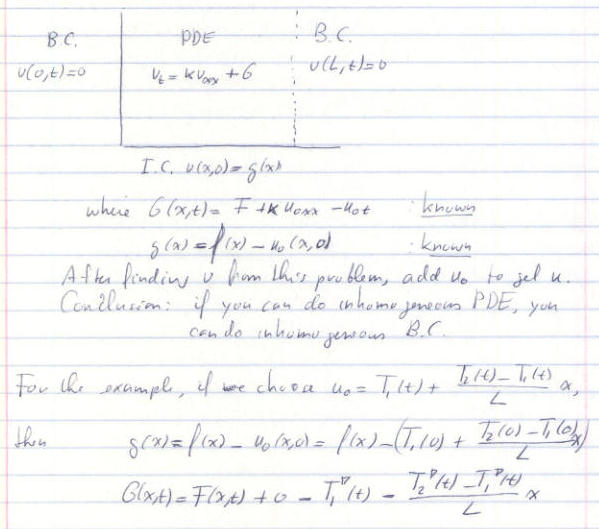 B.C. PDE B.C.
v(0,t)=0 v_t = κv_xx + G v(L,t)=0
I.C. v(x,0)=g(x)
where G(x,t)= F + κ u_0xx - u_0t : known
g(x)=f(x) - u_0(x,0) : known
After finding v from this problem, add u_0 to get u.
Conclusion: if you can do inhomogeneous PDE, you
can do inhomogeneous B.C.
For the example, if we choose u_0 = T_1(t) + (T_2(t) - T_1(t))/L x,
then g(x)=f(x) - u_0(x,0) = f(x) - (T_1(0) + (T_2(0) - T_1(0))/L x)
G(x,t)=F(x,t) + 0 - T_1'(t) - (T_2'(t) - T_1'(t))/L x